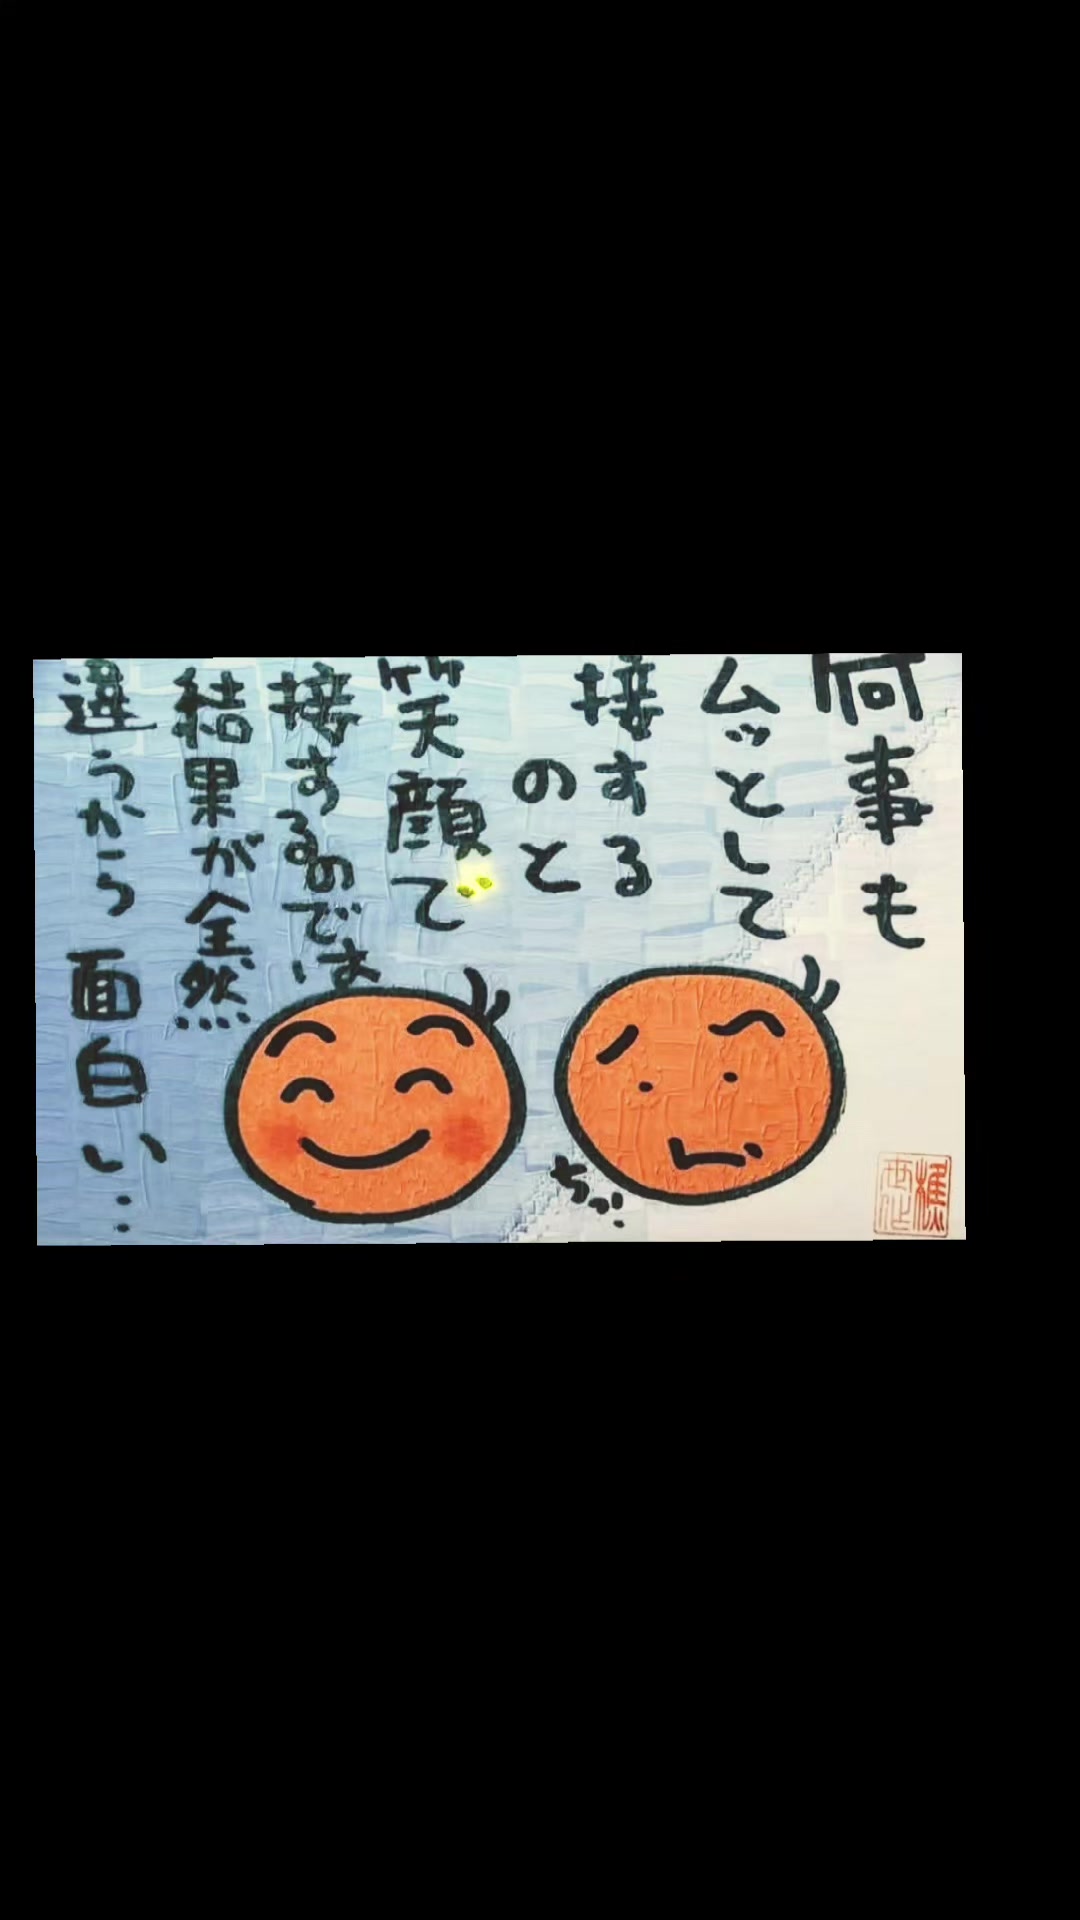 何事も
ムッとして
接する
のと
笑顔で
接するのでは
結果が全然…
違うから 面白い…
ちっ…